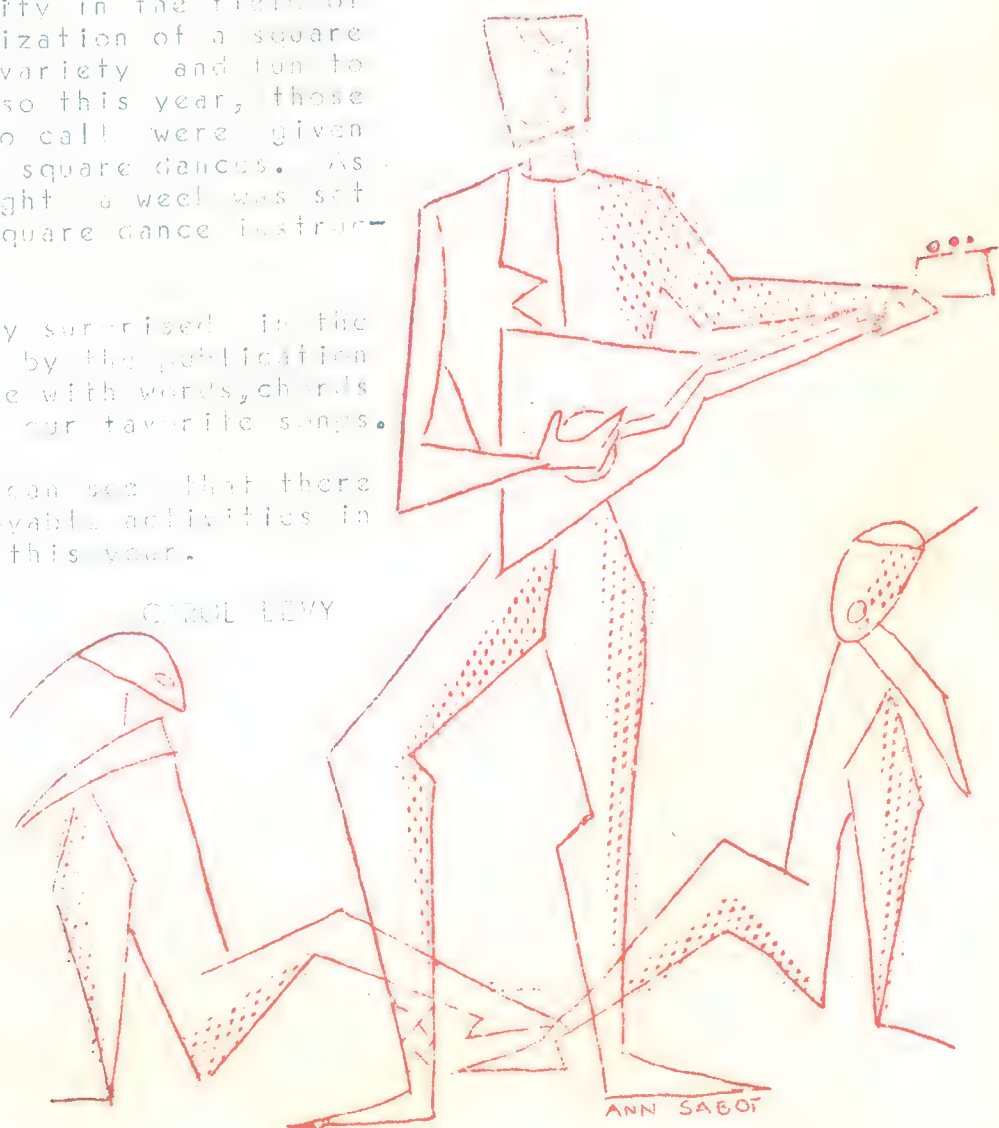 ity in the field of
ization of a square
variety and fun to
so this year, those
o call were given
square dances. As
ght a week was set
quare dance instruc-
y surprised in the
by the publication
e with words, chords
our favorite songs.
can see that there
yable activities in
this year.
CAROL LEVY
ANN SABOT